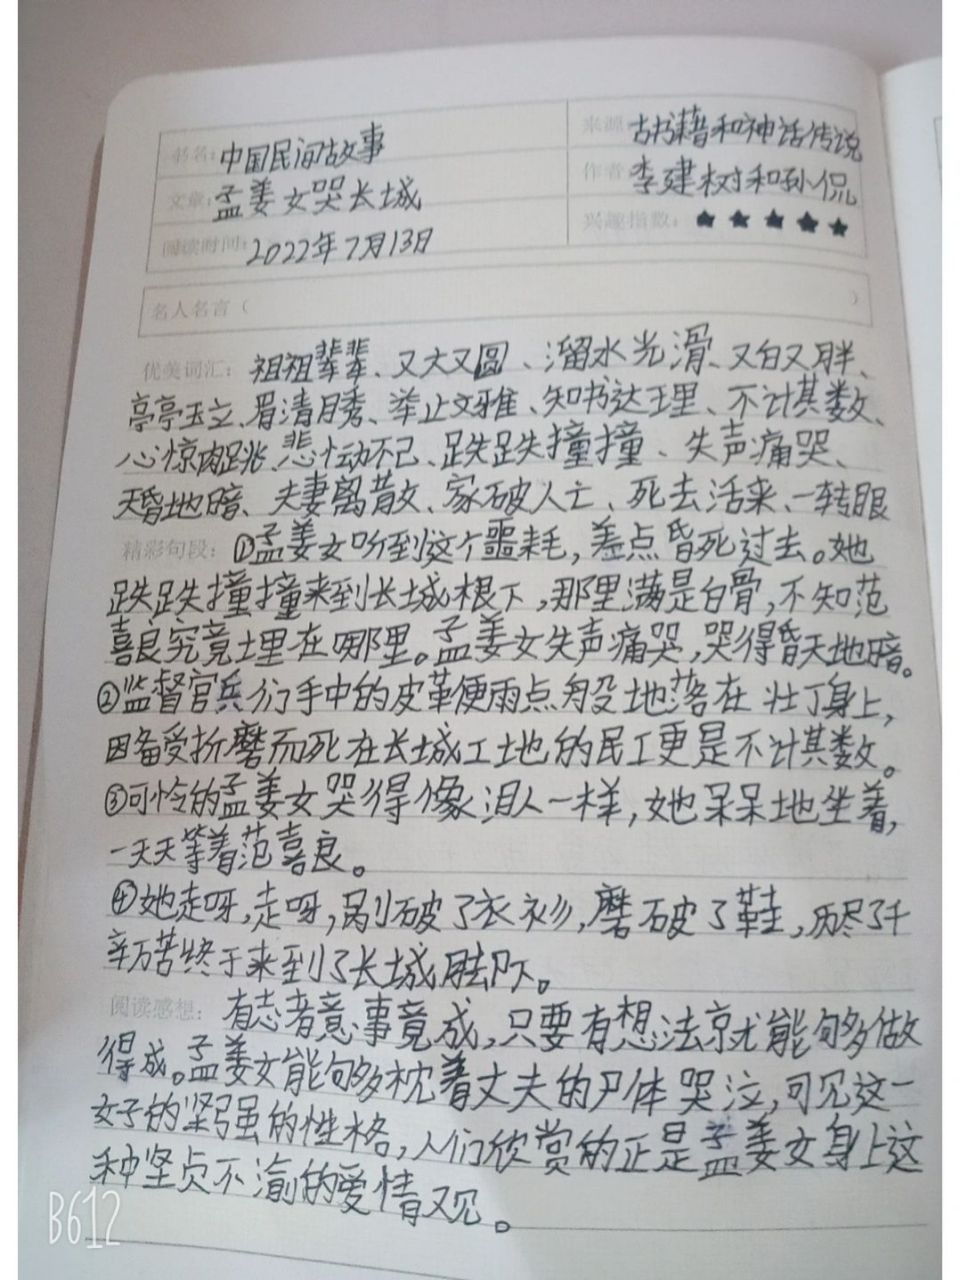 书名：中国民间故事
来源：古书籍和神话传说
文章：孟姜女哭长城
作者：李建树和孙侃
阅读时间：2022年7月13日
兴趣指数：★★★★★
名人名言（ ）
优美词汇：祖祖辈辈、又大又圆、溜水光滑、又白又胖、
亭亭玉立、眉清目秀、举止文雅、知书达理、不计其数、
心惊肉跳、悲恸不已、跌跌撞撞、失声痛哭、
天昏地暗、夫妻离散、家破人亡、死去活来、一转眼
精彩句段：①孟姜女听到这个噩耗，差点昏死过去。她
跌跌撞撞来到长城根下，那里满是白骨，不知范
喜良究竟埋在哪里。孟姜女失声痛哭，哭得昏天地暗。
②监督官兵们手中的皮革便雨点般地落在壮丁身上，
因备受折磨而死在长城工地的民工更是不计其数。
③可怜的孟姜女哭得像泪人一样，她呆呆地坐着，
一天天等着范喜良。
④她走呀，走呀，剐破了衣衫，磨破了鞋，历尽了千
辛万苦终于来到了长城脚下。
阅读感想：有志者意事竟成，只要有想法就能够做
得成。孟姜女能够枕着丈夫的尸体哭泣，可见这一
女子的坚强的性格，人们欣赏的正是孟姜女身上这
种坚贞不渝的爱情观。
B612